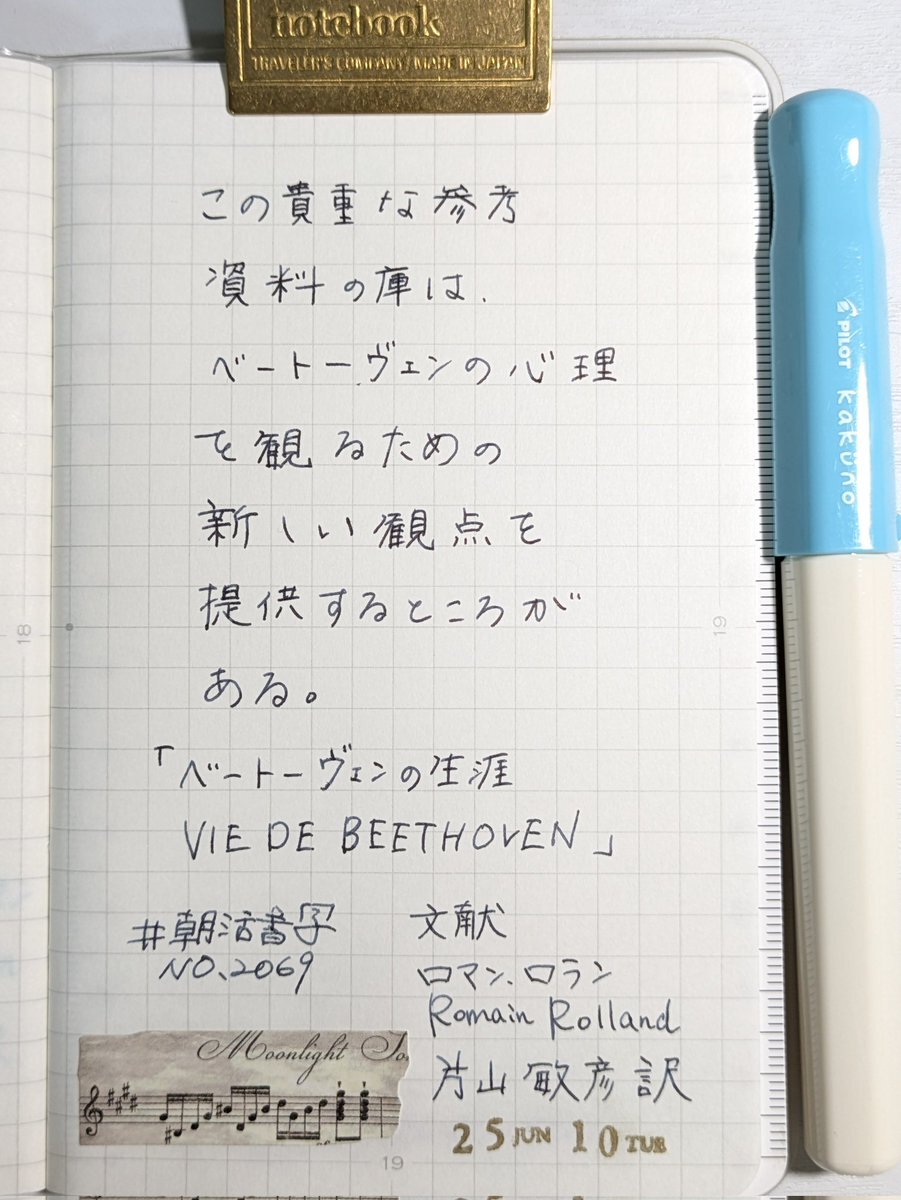 notebook
TRAVELER'S COMPANY / MADE IN JAPAN
この貴重な参考
資料の庫は、
ベートーヴェンの心理
を観るための
新しい観点を
提供するところが
ある。
「ベートーヴェンの生涯
VIE DE BEETHOVEN」
#朝活書写
NO.2069
文献
ロマン、ロラン
Romain Rolland
片山敏彦訳
Moonlight So
25 JUN 10 TUE
18
19
19
PILOT kaküno